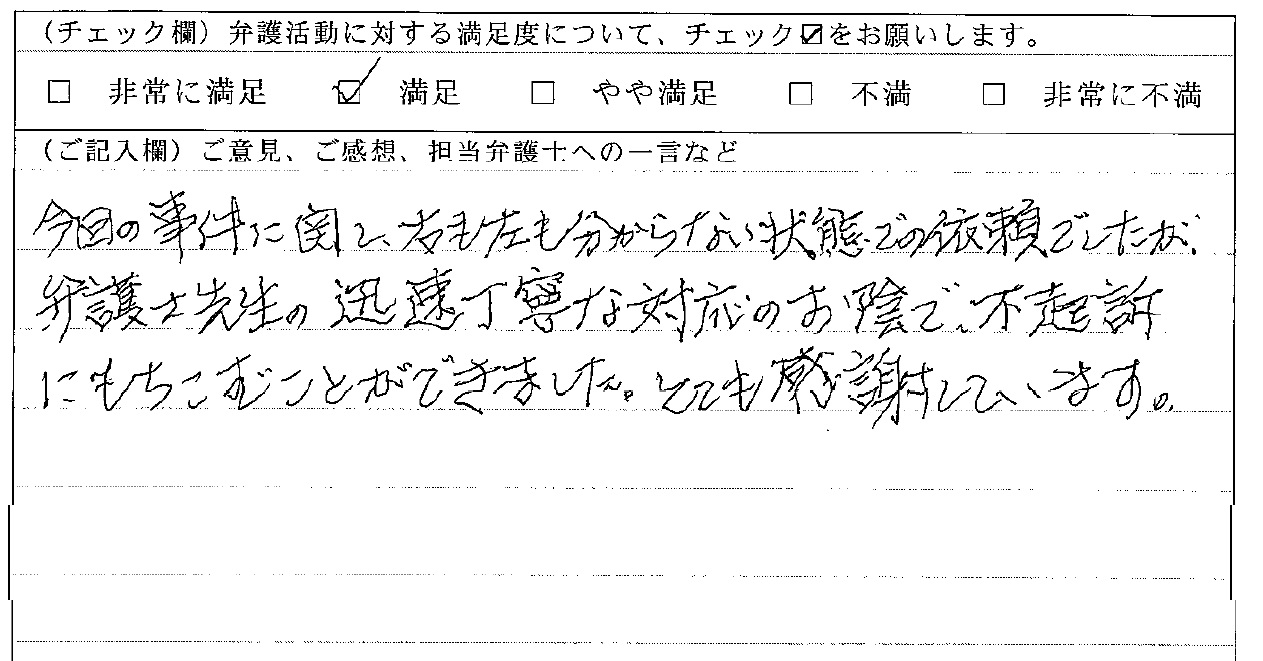 (チェック欄)弁護活動に対する満足度について、チェック☑をお願いします。
□ 非常に満足 ☑ 満足 □ やや満足 □ 不満 □ 非常に不満
(ご記入欄)ご意見、ご感想、担当弁護士への一言など
今回の事件に関して、右も左も分からない状態での依頼でしたが、
弁護士先生の迅速丁寧な対応のお陰で、不起訴
にもちこむことができました。とても感謝しています。